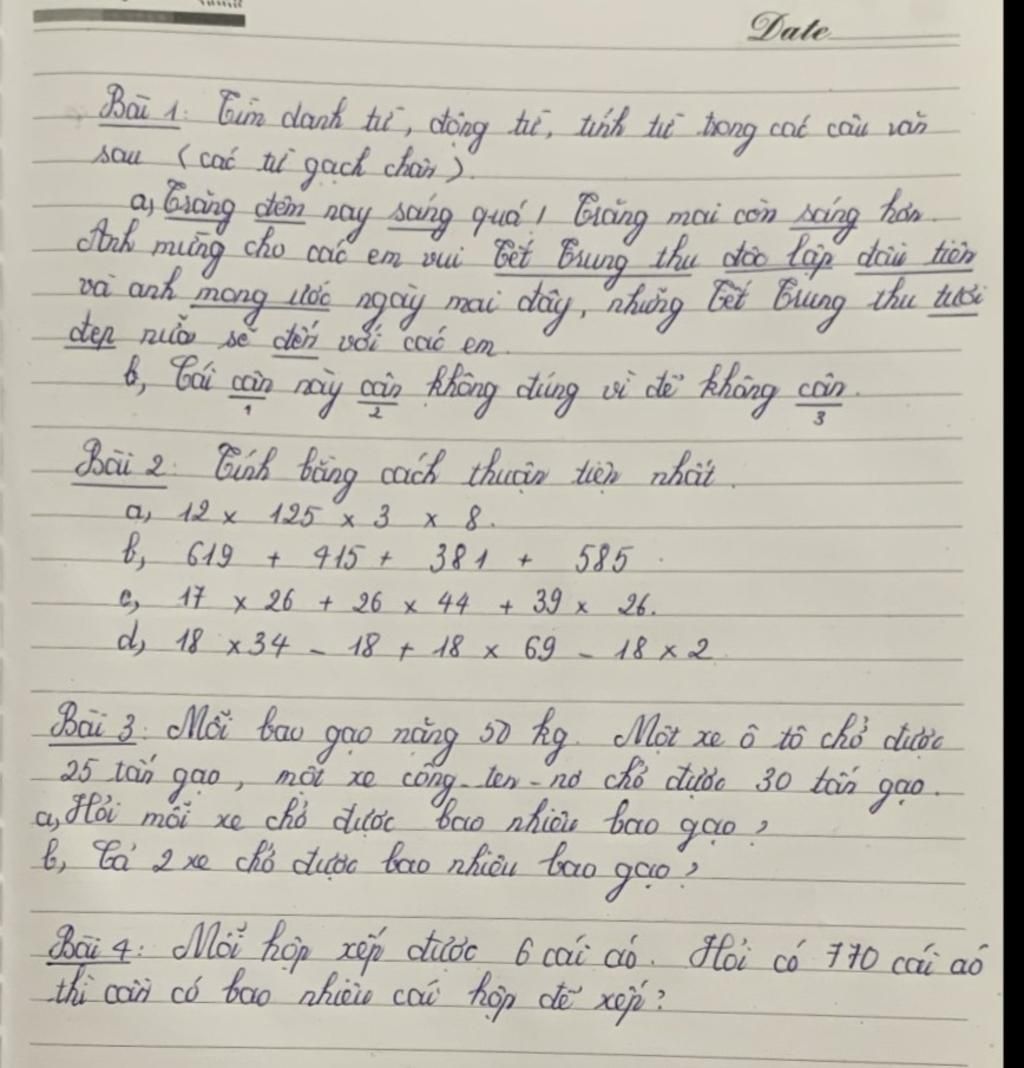 Date
Bài 1: Tìm danh từ, động từ, tính từ trong các câu văn
sau (các từ gạch chân).
a, Trăng đêm nay sáng quá! Trăng mai còn sáng hơn.
Anh mừng cho các em vui Tết Trung thu độc lập đầu tiên
và anh mong ước ngày mai đây, những Tết Trung thu tươi
đẹp nữa sẽ đến với các em.
b, Cái cân này cân không đúng vì để không cân.
1 2 3
Bài 2: Tính bằng cách thuận tiện nhất.
a, 12 x 125 x 3 x 8.
b, 619 + 415 + 381 + 585
c, 17 x 26 + 26 x 44 + 39 x 26.
d, 18 x 34 - 18 + 18 x 69 - 18 x 2
Bài 3: Mỗi bao gạo nặng 50 kg. Một xe ô tô chở được
25 tấn gạo, một xe công-ten-nơ chở được 30 tấn gạo.
a, Hỏi mỗi xe chở được bao nhiêu bao gạo?
b, Cả 2 xe chở được bao nhiêu bao gạo?
Bài 4: Mỗi hộp xếp được 6 cái áo. Hỏi có 770 cái áo
thì cần có bao nhiêu cái hộp để xếp?